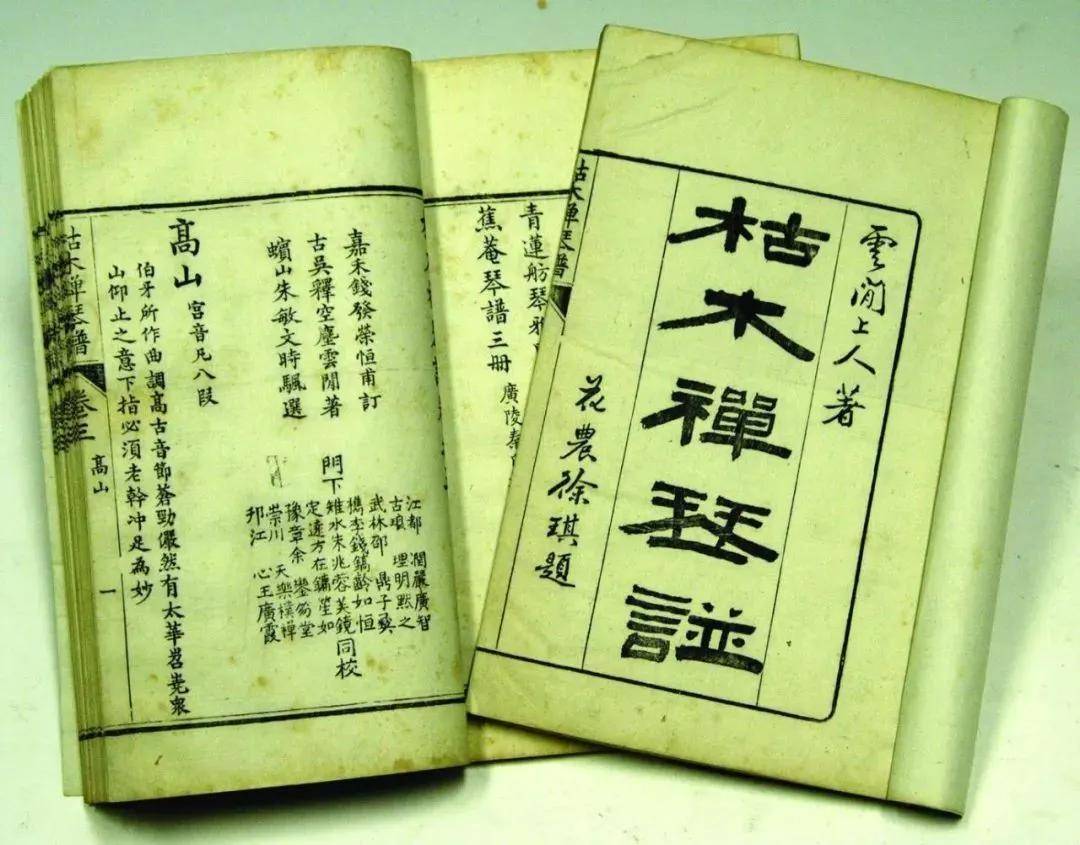 雲閒上人著
枯木禪琴譜
花農徐琪題
木禪琴譜
青蓮舫琴雅
蕉菴琴譜三冊 廣陵秦
嘉禾錢發榮恒甫訂
古吳釋空塵雲閒著 門下
蠙山朱敏文時颿選
江都 閏嚴廣智
古瑯 理明默之
武林邵 鼎子彝
檇李錢鏑齡如恒
雉水朱兆蓉芙鏡
定遠方在鏞笙如
豫章余 鑒笏堂
崇川 天樂樸禪
邗江 心王廣霞
同校
髙山 宮音凡八段
伯牙所作曲調髙古音節蒼勁儼然有太華岧嶤衆
山仰止之意下指必須老幹冲足為妙
木禪琴譜 卷三 髙山 一